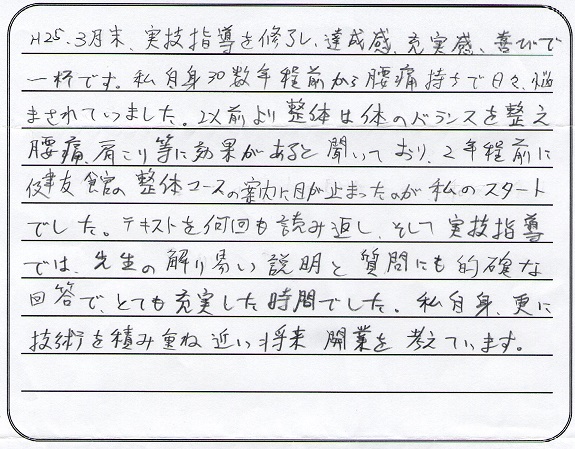 H25.3月末、実技指導を修了し、達成感、充実感、喜びで
一杯です。私自身30数年程前から腰痛持ちで日々、悩
まされていました。以前より整体は体のバランスを整え
腰痛、肩こり等に効果があると聞いており、2年程前に
健友館の整体コースの案内に目が止まったのが私のスタート
でした。テキストを何回も読み返し、そして実技指導
では、先生の解り易い説明と質問にも的確な
回答で、とても充実した時間でした。私自身、更に
技術を積み重ね近い将来開業を考えています。